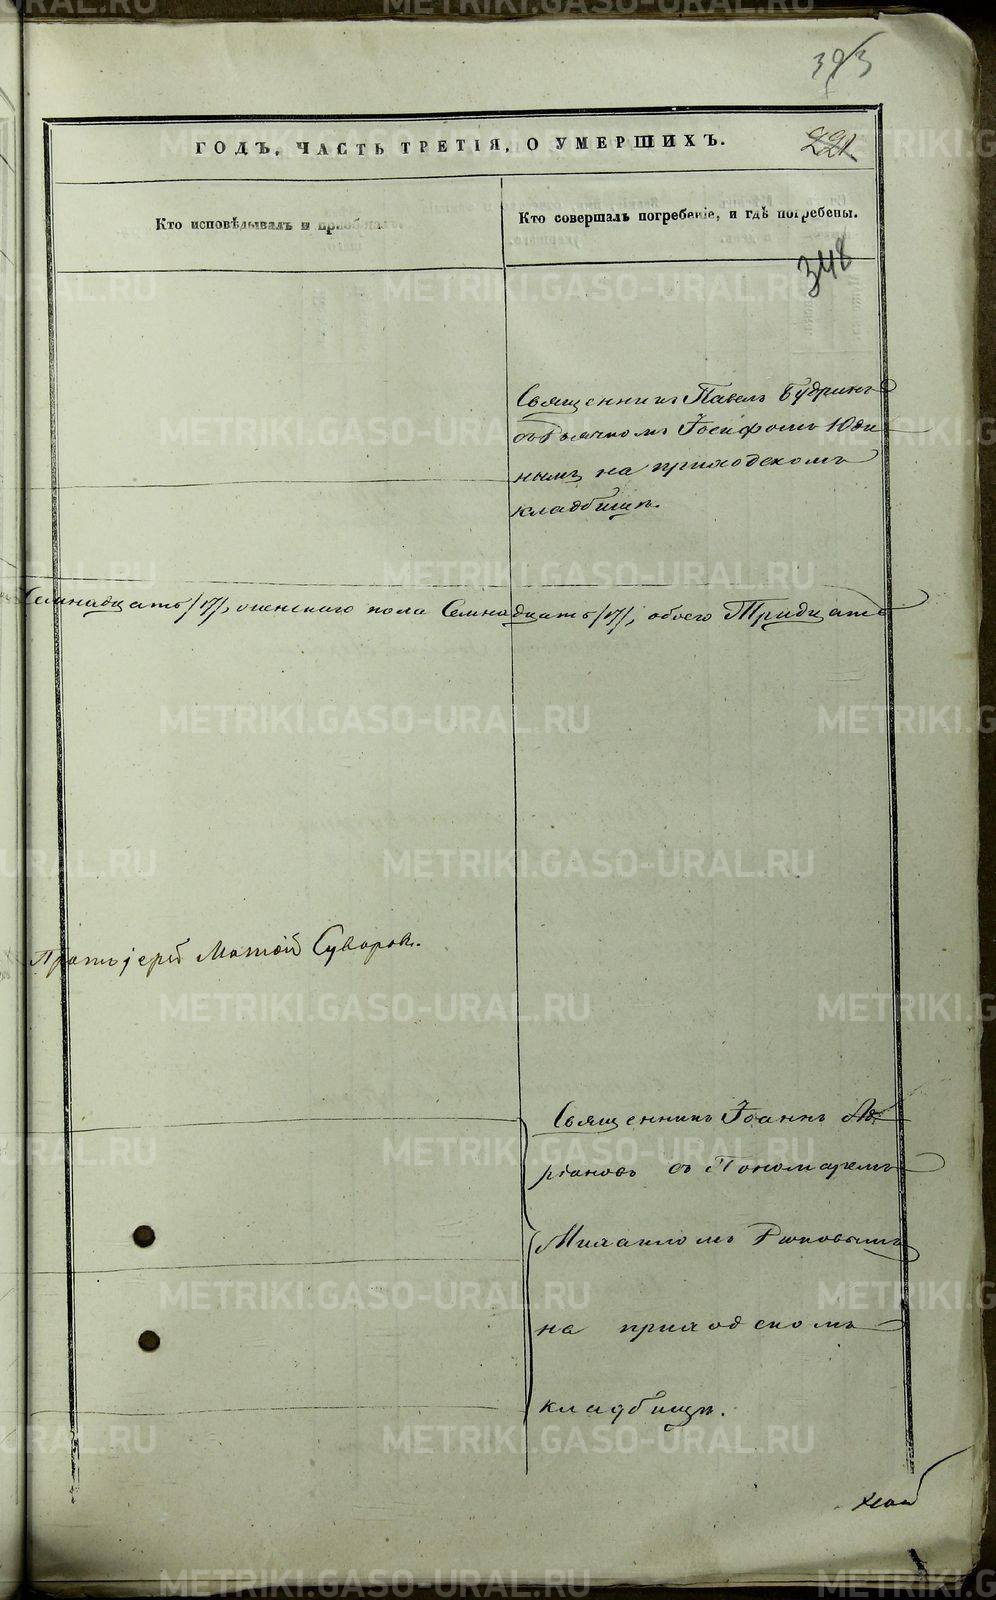 ГОДЪ, ЧАСТЬ ТРЕТІЯ, О УМЕРШИХЪ.
221
Кто исповѣдывалъ и пріобщалъ.
Кто совершалъ погребеніе, и гдѣ погребены.
348
Священникъ Павелъ Будринъ
съ Дьячкомъ Іосифомъ Юди
нымъ на приходскомъ
кладбищѣ.
Семнадцать /17/, женскаго пола Семнадцать /17/, обоего Тридцать
Протоіерей Матѳій Суворовъ.
Священникъ Іоаннъ Ад
ріановъ съ Пономаремъ
Михаиломъ
на приходскомъ
кладбищѣ.
METRIKI.GASO-URAL.RU